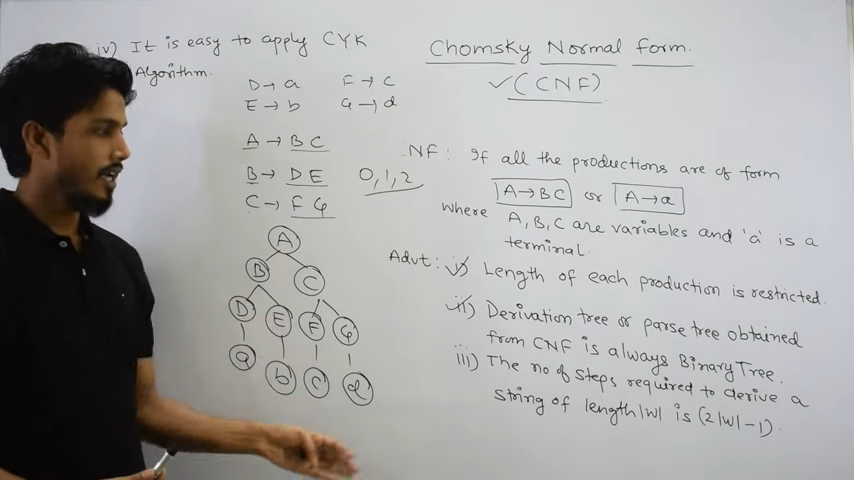 iv) It is easy to apply CYK
Algorithm.
D → a F → c
E → b G → d
A → BC
B → DE 0,1,2
C → F G
A
B C
D E F G
a b c d
Chomsky Normal form.
✓(CNF)
NF: If all the productions are of form
A→BC or A→a
where A, B, C are variables and 'a' is a
terminal.
Advt: i) Length of each production is restricted.
ii) Derivation tree or parse tree obtained
from CNF is always Binary Tree.
iii) The no of steps required to derive a
string of length |w| is (2|w|-1).